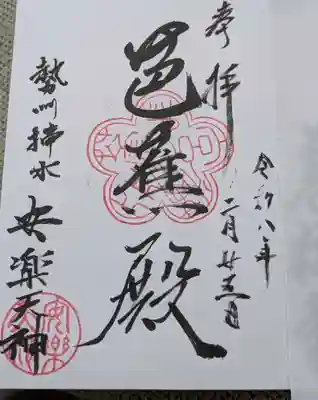 奉拝
令和八年
二月廿五日
芭蕉殿
勢州拝水
安楽天神